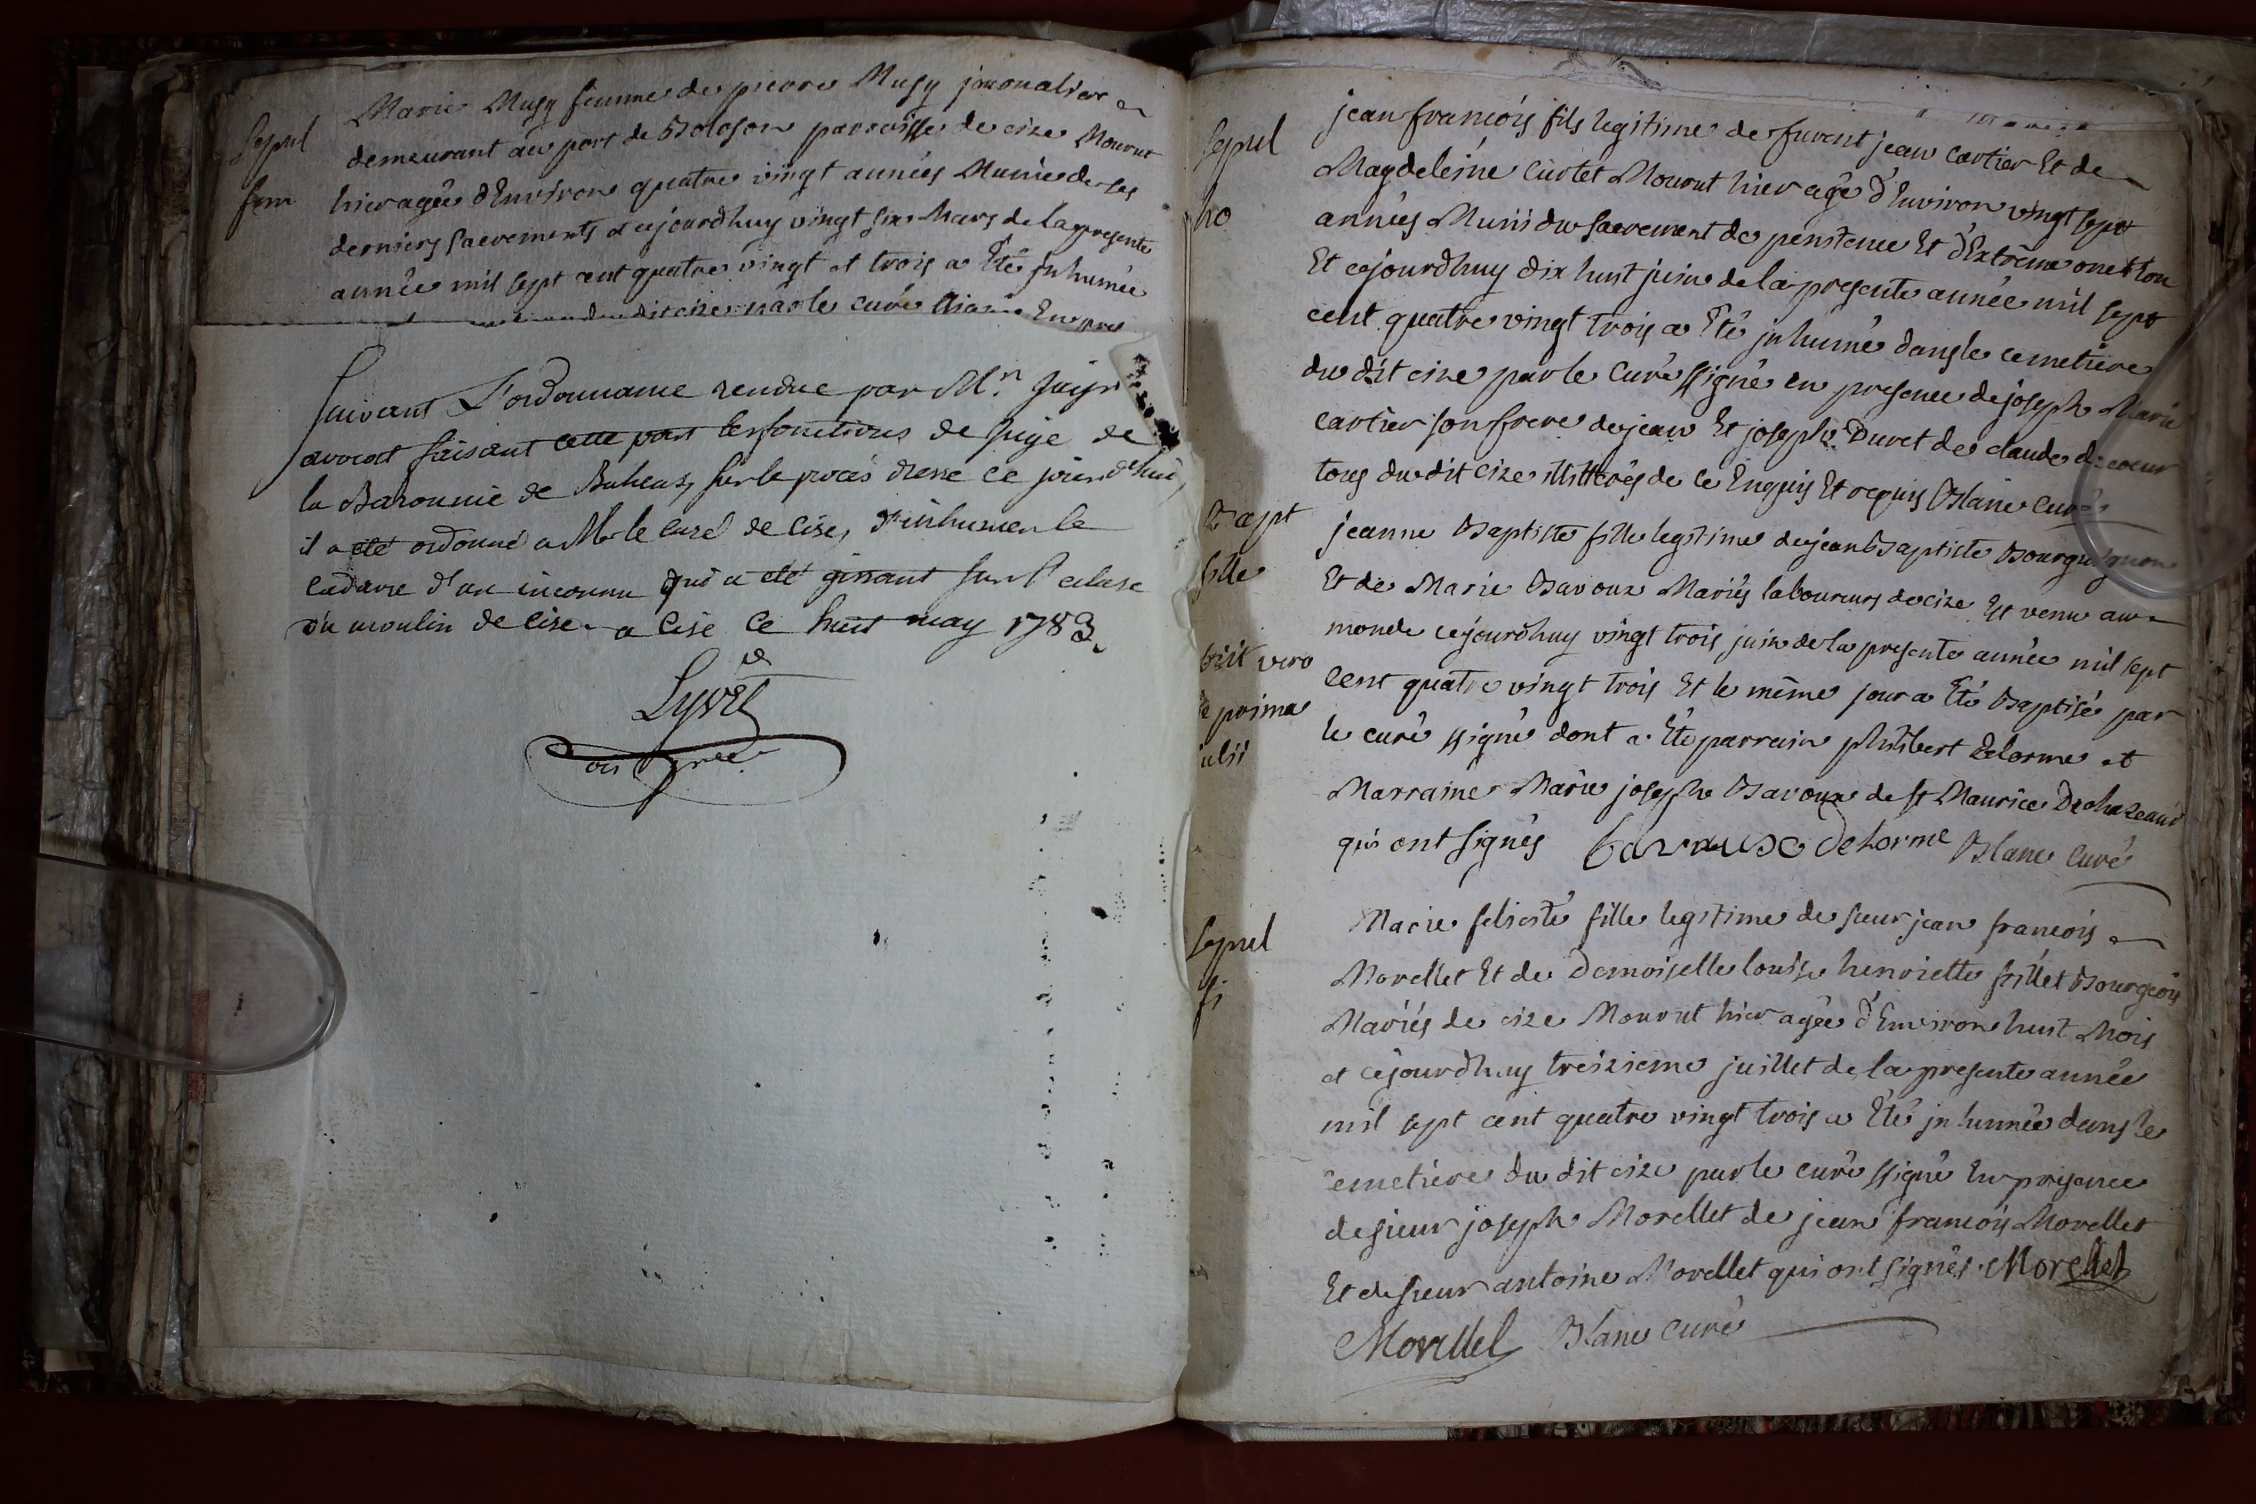 Sepul
fem
Marie Musy femme de pierre Musy journalier
demeurant au port de Boloson parroisse de cize Mourut
hier agée d'Environ quatre vingt années Munie de ses
derniers sacrements et cejourdhuy vingt six Mars de la presente
année mil sept cent quatre vingt et trois a Eté jnhumée
dudit cize par le curé En pres
Suivant L'ordonnance rendue par Mr.
avocat faisant cette part les fonctions de juge de
la Baronnie de Buheas, sur le procés dressé ce jourd'hui,
il a eté ordonné a Mr le curé de Cise, d'inhumer le
cadavre d'un inconnu qui a eté gissant sur l'ecluse
du moulin de Cise. a Cise ce huit may 1783.
Sepul
ho
jean francois fils legitime de furent jean cartier Et de
Magdeleine curtet Mourut hier agé d'Environ vingt sept
années Muni du sacrement de penitence Et d'Extreme onction
Et cejourdhuy dix huit juin de la presente année mil sept
cent quatre vingt trois a Eté jnhumé dans le cemetiere
du dit cize par le curé ssigné en presence de joseph Marie
cartier son frere de jean Et joseph Duret de claude
tous du dit cize illitterés de ce Enquis Et requis Blanc curé
Bapt
fille
jeanne Baptiste fille legitime de jean Baptiste Bourguignon
Et de Marie Bavoux Mariés laboureurs de cize Est venu au
monde cejourdhuy vingt trois juin de la presente année mil sept
Cent quatre vingt trois Et le même jour a Eté Baptisé par
le curé ssigné dont a Eté parrain philibert Delorme et
Marraine Marie joseph Bavoux de st Maurice Dechazeaux
qui ont signés bavoux Delorme Blanc curé
Sepul
fi
Marie felicité fille legitime de sieur jean francois
Morellet Et de Demoiselle louise henriette fillet Bourgeois
Mariés de cize Mourut hier agée d'Environ huit Mois
et cejourdhuy treizieme juillet de la presente année
mil sept cent quatre vingt trois a Eté jnhumée dans le
cemetiere du dit cize par le curé ssigné En presence
de sieur joseph Morellet de jean francois Morellet
Et de sieur antoine Morellet qui ont signés. Morellet
Morellet Blanc curé